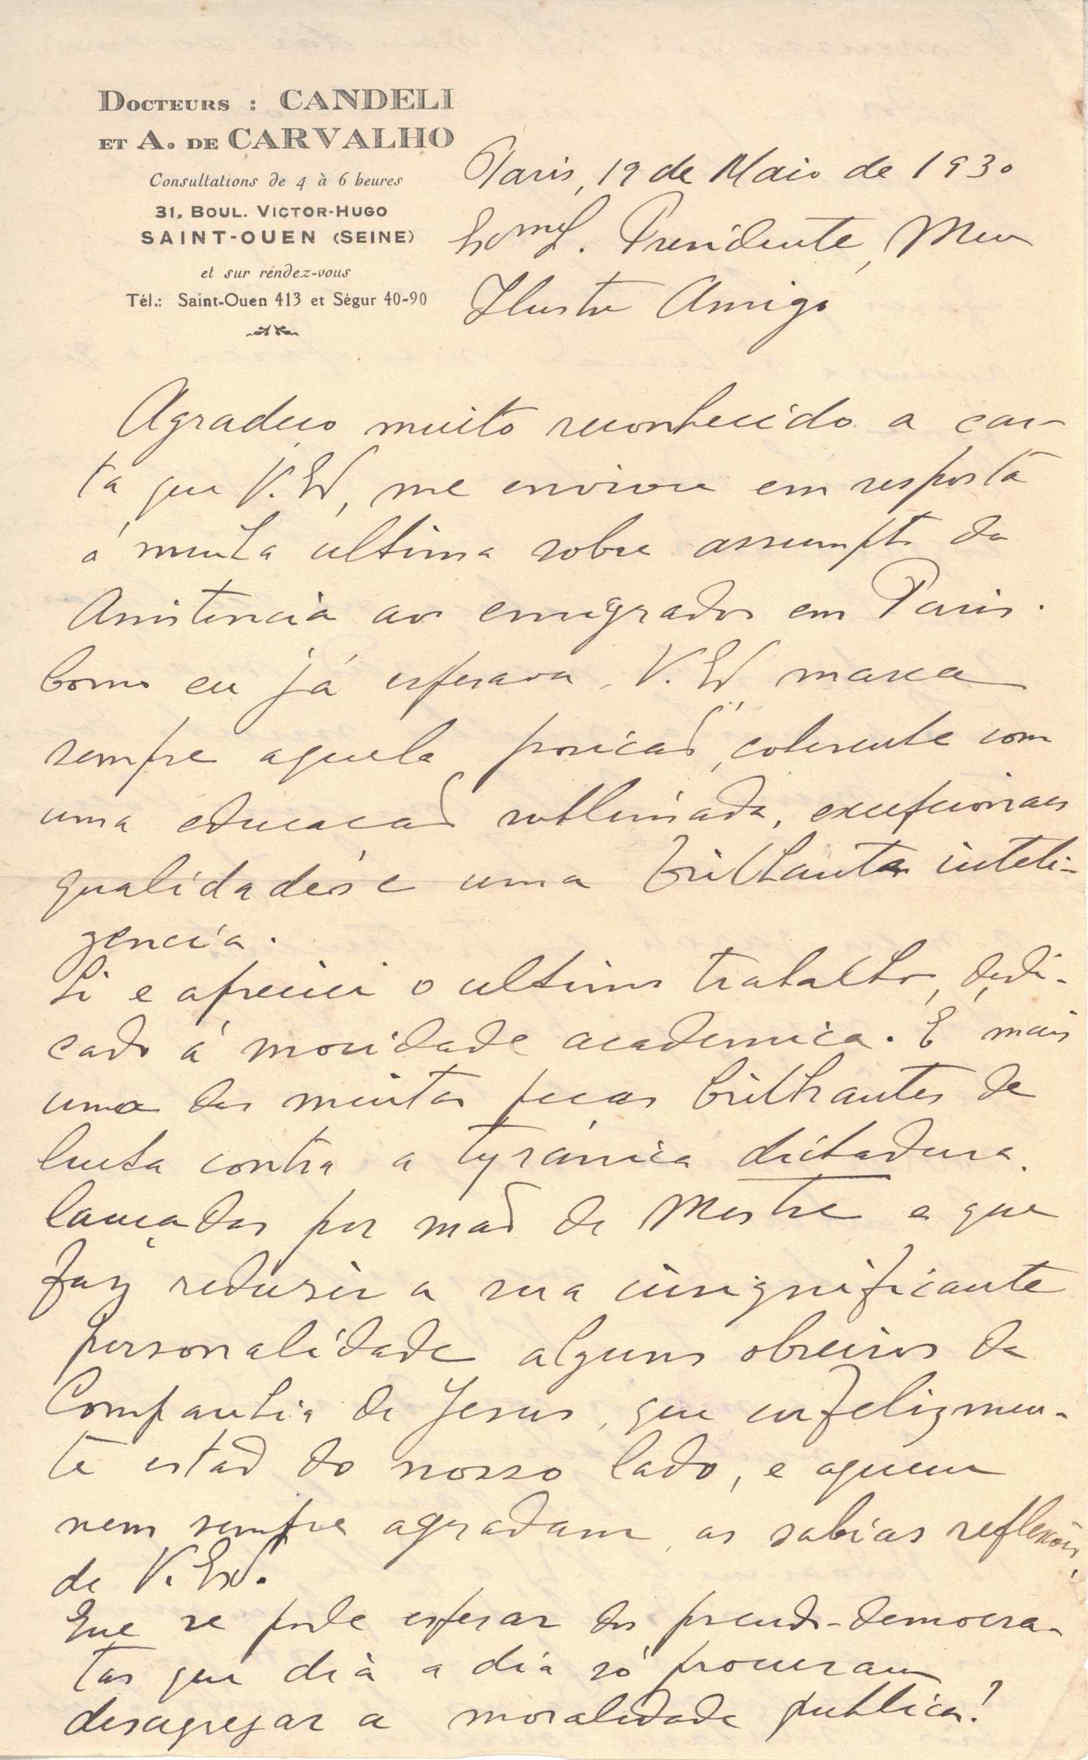 DOCTEURS : CANDELI
ET A. DE CARVALHO
Consultations de 4 à 6 heures
31, BOUL. VICTOR-HUGO
SAINT-OUEN (SEINE)
et sur rendez-vous
Tél.: Saint-Ouen 413 et Ségur 40-90
Paris, 19 de Maio de 1930
Presidente, Meu
Ilustre Amigo
Agradeço muito reconhecido a car-
ta que V. Ex, me enviou em resposta
á minha ultima sobre assumpto da
Assistencia aos emigrados em Paris.
Como eu já esperava, V. Ex marca
sempre aquela posicão, coherente com
uma educacão sublimada, excepcionaes
qualidades e uma brilhante inteli-
gencia.
Li e apreciei o ultimo trabalho, dedi-
cado á mocidade academica. É mais
uma das muitas peças brilhantes de
lucta contra a tyránica dictadura,
lançadas por mão de Mestre e que
faz reduzir a sua insignificante
personalidade alguns obreiros da
Companhia de Jesus, que infelizmen-
te estão do nosso lado, e a quem
nem sempre agradam as sabias reflexões,
de V. Ex.
Que se pode esperar dos pseudo-democra-
tas que dia a dia só procuram
desagregar a moralidade publica?